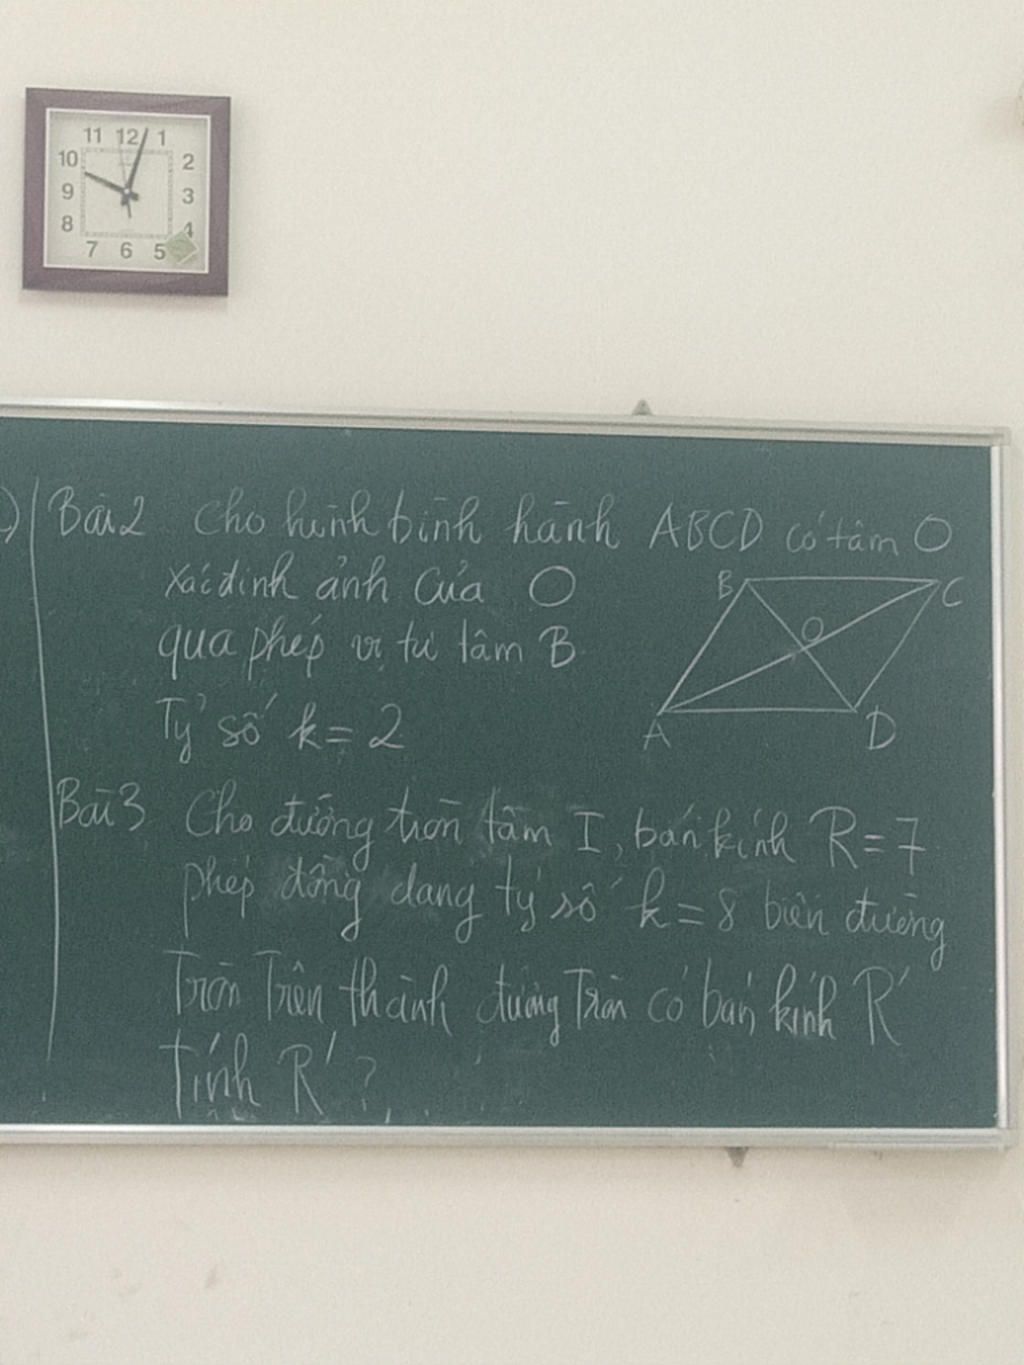 11 12 1
10 2
9 3
8 4
7 6 5
Bài 2 Cho hình bình hành ABCD có tâm O
Xác định ảnh của O
qua phép vị tự tâm B
Tỷ số k = 2
B C
O
A D
Bài 3 Cho đường tròn tâm I, bán kính R = 7
phép đồng dạng tỷ số k = 8 biến đường
Tròn Trên thành đường Tròn có bán kính R'
Tính R' ?